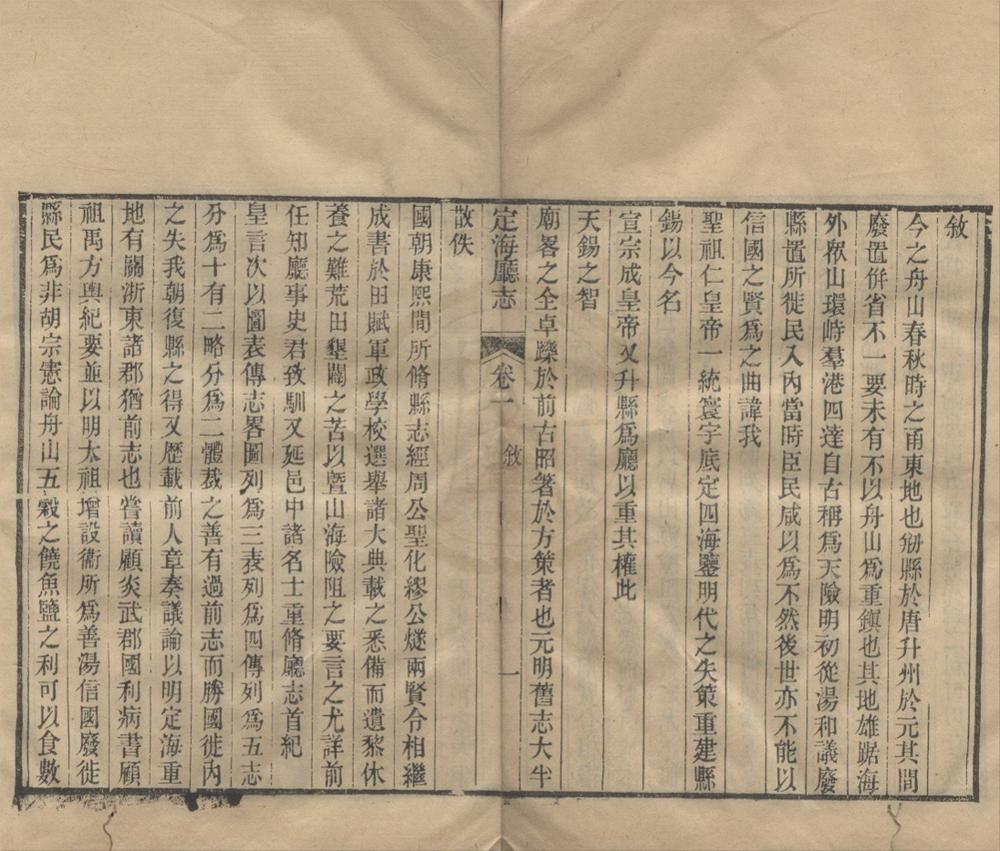 敘
今之舟山春秋時之甬東地也剏縣於唐升州於元其間
廢置併省不一要未有不以舟山爲重鎭也其地雄踞海
外眾山環峙羣港四達自古稱爲天險明初從湯和議廢
縣置所徙民入內當時臣民咸以爲不然後世亦不能以
信國之賢爲之曲諱我
聖祖仁皇帝一統寰宇底定四海鑒明代之失策重建縣
錫以今名
宣宗成皇帝又升縣爲廳以重其權此
天錫之智
廟畧之全卓躒於前古昭箸於方策者也元明舊志大半
定海廳志
卷一
敘
一
散佚
國朝康熙間所脩縣志經周公聖化繆公燧兩賢令相繼
成書於田賦軍政學校選舉諸大典載之悉備而遺黎休
養之難荒田墾闢之苦以曁山海險阻之要言之尤詳前
任知廳事史君致馴又延邑中諸名士重脩廳志首紀
皇言次以圖表傳志畧圖列爲三表列爲四傳列爲五志
分爲十有二略分爲二體裁之善有過前志而勝國徙內
之失我朝復縣之得又歷載前人章奏議論以明定海重
地有關浙東諸郡猶前志也嘗讀顧炎武郡國利病書顧
祖禹方輿紀要並以明太祖增設衞所爲善湯信國廢徙
縣民爲非胡宗憲論舟山五穀之饒魚鹽之利可以食數